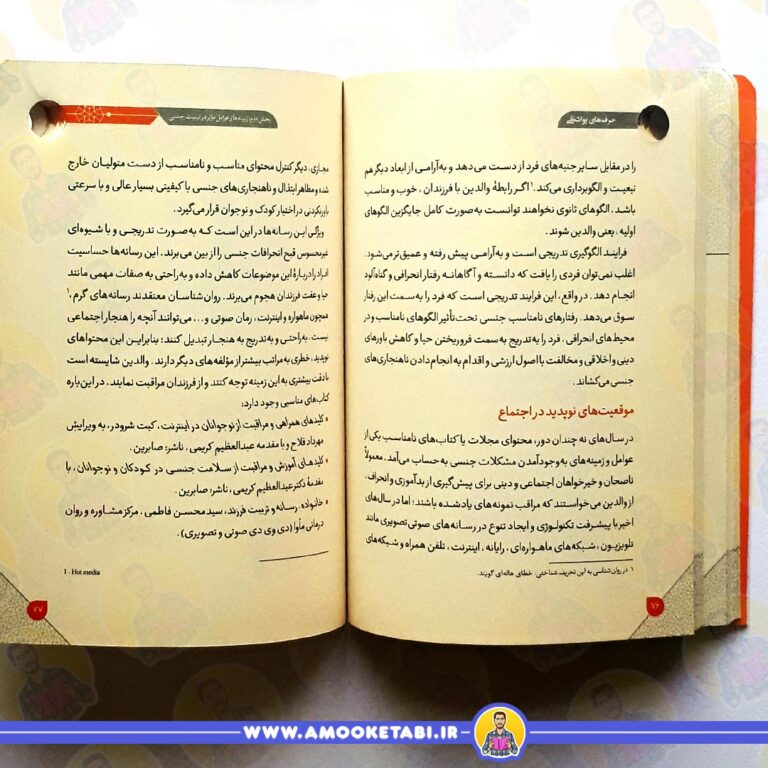 حرف‌های یواشکی
را در مقابل سایر جنبه‌های فرد از دست می‌دهد و به‌آرامی از ابعاد دیگر هم
تبعیت و الگوبرداری می‌کند.۱ اگر رابطهٔ والدین با فرزندان، خوب و مناسب
باشد، الگوهای ثانوی نخواهند توانست به‌صورت کامل جایگزین الگوهای
اولیه، یعنی والدین شوند.
فرایند الگوگیری تدریجی است و به‌آرامی پیش رفته و عمیق‌تر می‌شود.
اغلب نمی‌توان فردی را یافت که دانسته و آگاهانه رفتار انحرافی و گناه‌آلود
انجام دهد. در واقع، این فرایند تدریجی است که فرد را به‌سمت این رفتار
سوق می‌دهد. رفتارهای نامناسب جنسی تحت‌تأثیر الگوهای نامناسب و در
محیط‌های انحرافی، فرد را به‌تدریج به‌سمت فروریختن حیا و کاهش باورهای
دینی و اخلاقی و مخالفت با اصول ارزشی و اقدام به انجام دادن ناهنجاری‌های
جنسی می‌کشاند.
موقعیت‌های نوپدید در اجتماع
در سال‌های نه چندان دور، محتوای مجلات یا کتاب‌های نامناسب یکی از
عوامل و زمینه‌های به‌وجودآمدن مشکلات جنسی به حساب می‌آمد. معمولاً
ناصحان و خیرخواهان اجتماعی و دینی برای پیش‌گیری از بدآموزی و انحراف،
از والدین می‌خواستند که مراقب نمونه‌های یادشده باشند؛ اما در سال‌های
اخیر با پیشرفت تکنولوژی و ایجاد تنوع در رسانه‌های صوتی تصویری مانند
تلویزیون، شبکه‌های ماهواره‌ای، رایانه، اینترنت، تلفن همراه و شبکه‌های
۱. در روان‌شناسی به این تحریف شناختی، خطای هاله‌ای گویند.
۷۶
بخش دوم: زمینه‌ها و عوامل مؤثر در تربیت جنسی
مجازی، دیگر کنترل محتوای مناسب و نامناسب از دست متولیان خارج
شده و مظاهر ابتذال و ناهنجاری‌های جنسی با کیفیتی بسیار عالی و با سرعتی
باورنکردنی در اختیار کودک و نوجوان قرار می‌گیرد.
ویژگی این رسانه‌ها در این است که به‌صورت تدریجی و با شیوه‌ای
غیرمحسوس قبح انحرافات جنسی را از بین می‌برند. این رسانه‌ها حساسیت
افراد را دربارهٔ این موضوعات کاهش داده و به‌راحتی به صفات مهمی مانند
حیا و عفت فرزندان هجوم می‌برند. روان‌شناسان معتقدند رسانه‌های گرم،۱
همچون ماهواره و اینترنت، رمان صوتی و... می‌توانند آنچه را هنجار اجتماعی
نیست، به‌راحتی و به‌تدریج به هنجار تبدیل کنند؛ بنابراین این محتواهای
نوپدید، خطری به مراتب بیشتر از مؤلفه‌های دیگر دارند. والدین شایسته است
با دقت بیشتری به این زمینه توجه کنند و از فرزندان مراقبت نمایند. در این‌باره
کتاب‌های مناسبی وجود دارد:
• کلیدهای همراهی و مراقبت از نوجوانان در اینترنت، کیت شرودر، به ویرایش
مهرداد فلاح و با مقدمه عبدالعظیم کریمی، ناشر: صابرین.
• کلیدهای آموزش و مراقبت از سلامت جنسی در کودکان و نوجوانان، با
مقدمهٔ دکتر عبدالعظیم کریمی، ناشر: صابرین.
• خانواده، رسانه و تربیت فرزند، سید محسن فاطمی، مرکز مشاوره و روان
درمانی مأوا (دی وی دی صوتی و تصویری).
1 . Hot media
۷۷
WWW.AMOOKETABI.IR